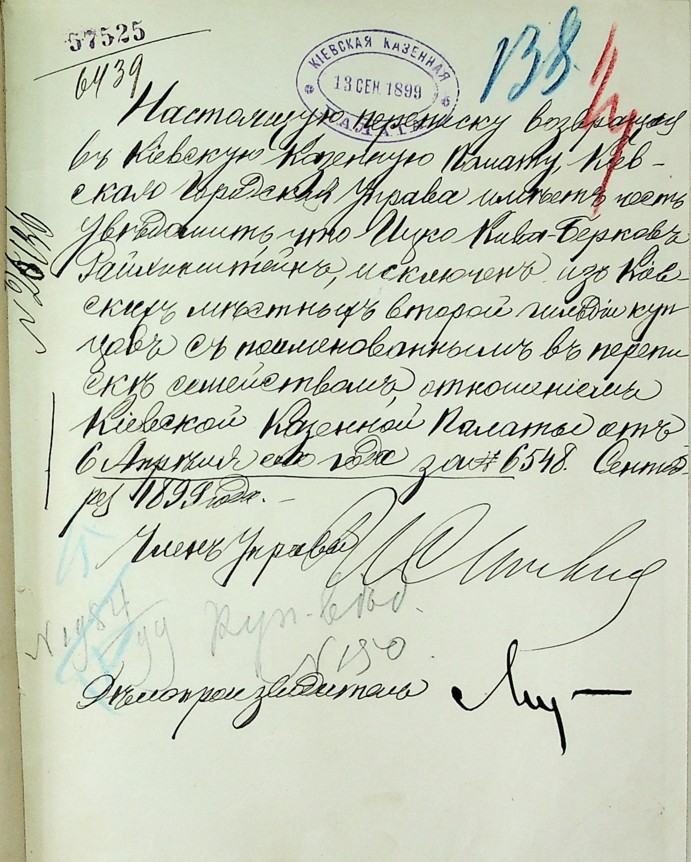 57525
6439
КІЕВСКАЯ КАЗЕННАЯ
13 СЕН 1899
ПАЛАТА
138
Настоящую переписку возвращая
въ Кіевскую Казенную Палату, Кіев-
ская Городская Управа имѣетъ честь
увѣдомить, что Ицко Кива-Берковъ
исключенъ изъ Кіев-
скихъ мѣстныхъ второй гильдіи куп-
цовъ съ поименованнымъ въ перепи-
скѣ семействомъ, отношеніемъ
Кіевской Казенной Палаты отъ
6 Апрѣля сего года за № 6548. Сентяб-
ря 1899 года.
Членъ Управы
№ 1984/99 Куп-
№ 150
Дѣлопроизводитель